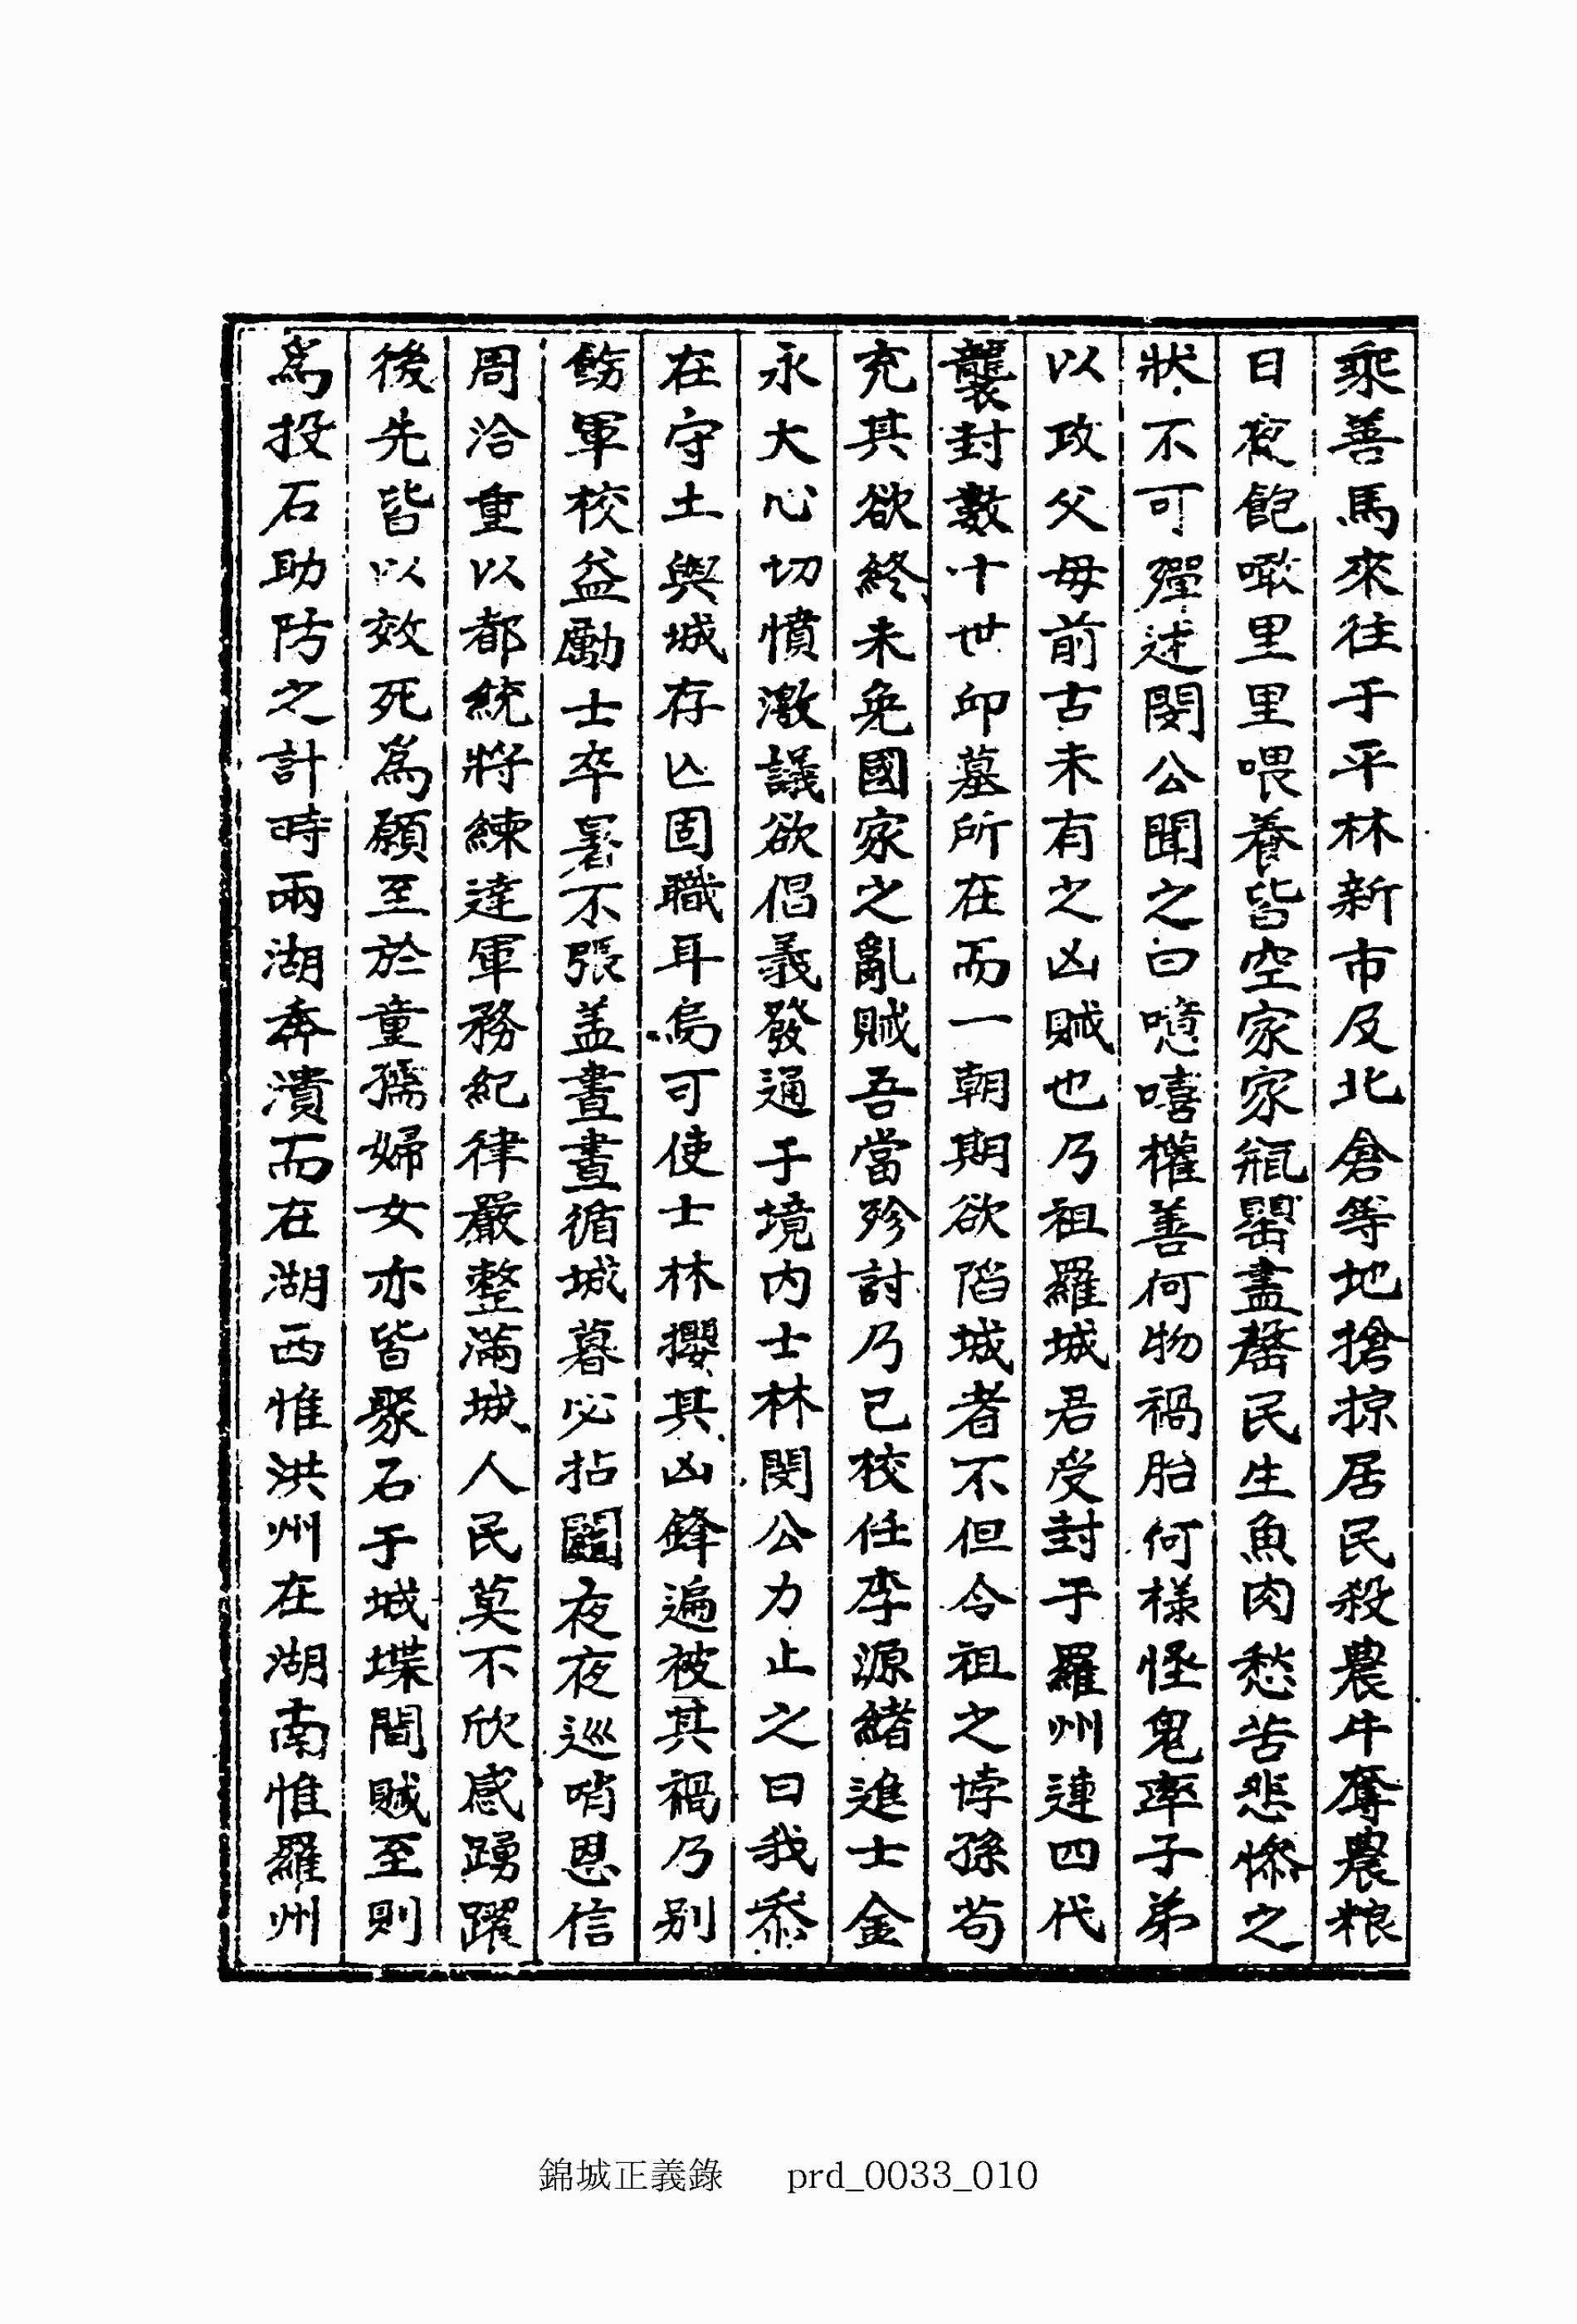 乘善馬來徃于平林新市及北倉等地搶掠居民殺農牛奪農粮
日夜飽噉里里喂養皆空家家瓶罌盡罄民生魚肉愁苦悲慘之
狀不可殫述閔公聞之曰噫嘻權善何物禍胎何樣怪鬼率子弟
以攻父母前古未有之凶賊也乃祖羅城君受封于羅州連四代
襲封數十世邱墓所在而一朝期欲陷城者不但令祖之悖孫苟
充其欲終未免國家之亂賊吾當殄討乃已校任李源緖進士金
永大心切憤激議欲倡義發通于境内士林閔公力止之曰我忝
在守土與城存亡固職耳烏可使士林攖其凶鋒遍被其禍乃别
飭軍校益勵士卒暑不張盖晝晝循城暮必拈鬮夜夜巡哨恩信
周洽重以都統將練達軍務紀律嚴整滿城人民莫不欣感踴躍
後先皆以效死爲願至於童孺婦女亦皆聚石于城堞間賊至則
爲投石助防之計時兩湖奔潰而在湖西惟洪州在湖南惟羅州
錦城正義錄 prd_0033_010